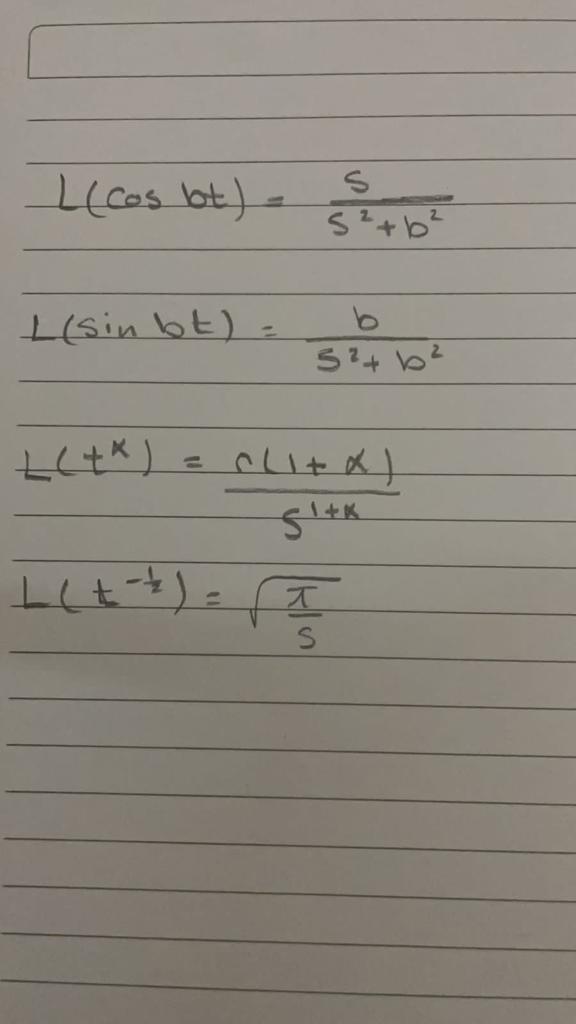 L(cos bt) = s / (s² + b²)
L(sin bt) = b / (s² + b²)
L(t^α) = Γ(1 + α) / s^(1+α)
L(t^(-1/2)) = √(π/s)